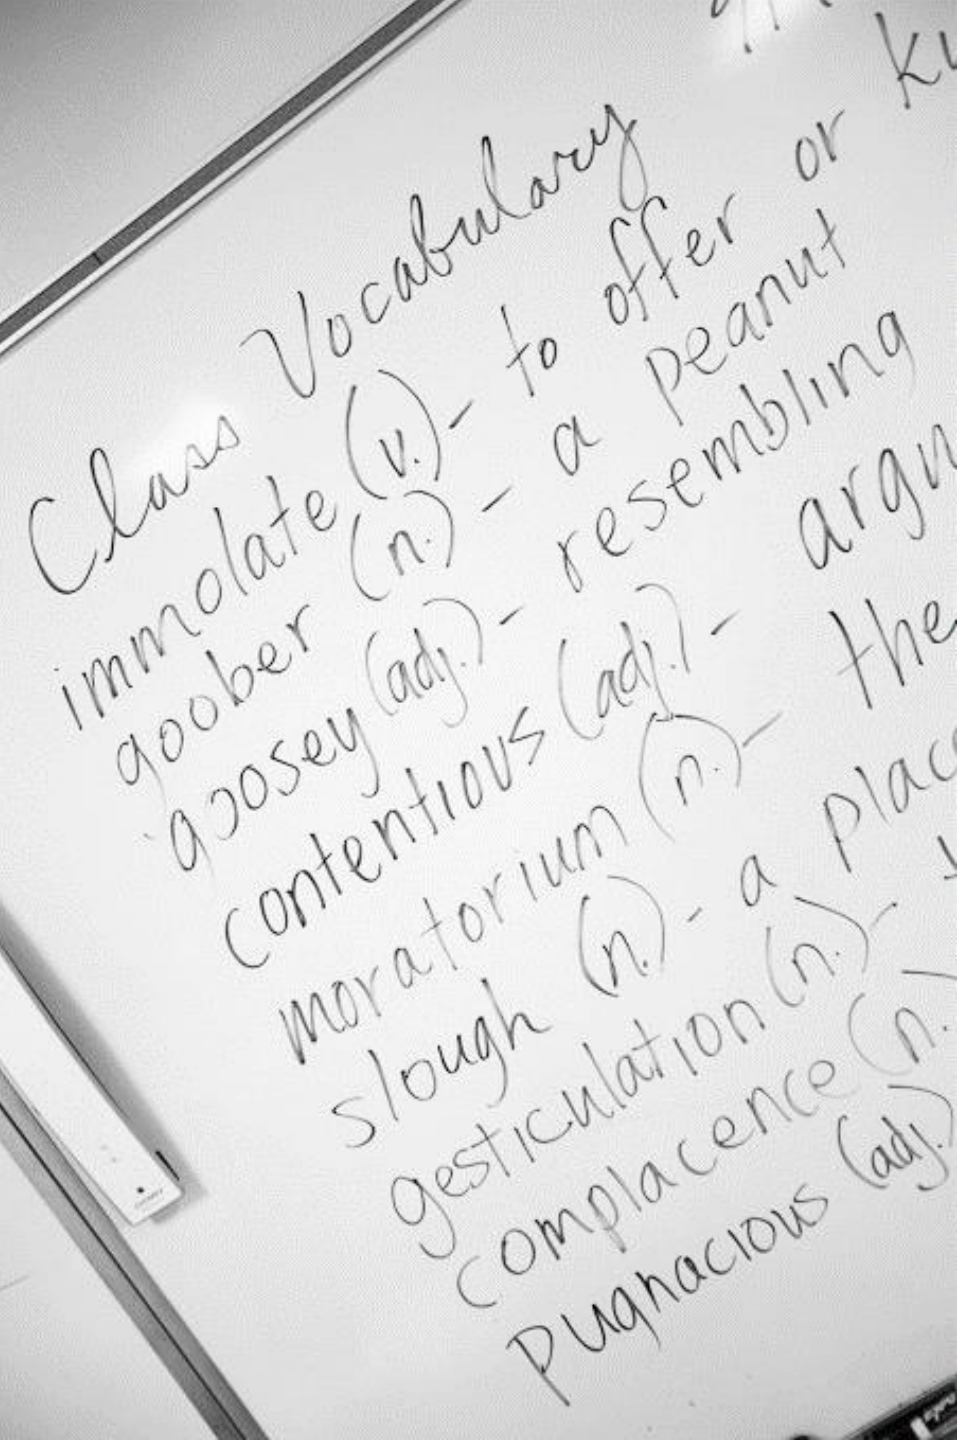 Class Vocabulary
immolate (v.) - to offer or
goober (n.) - a peanut
goosey (adj.) - resembling
contentious (adj.) -
moratorium (n.) - the
slough (n.) - a
gesticulation (n.) -
complacence (n.
pugnacious (adj.)